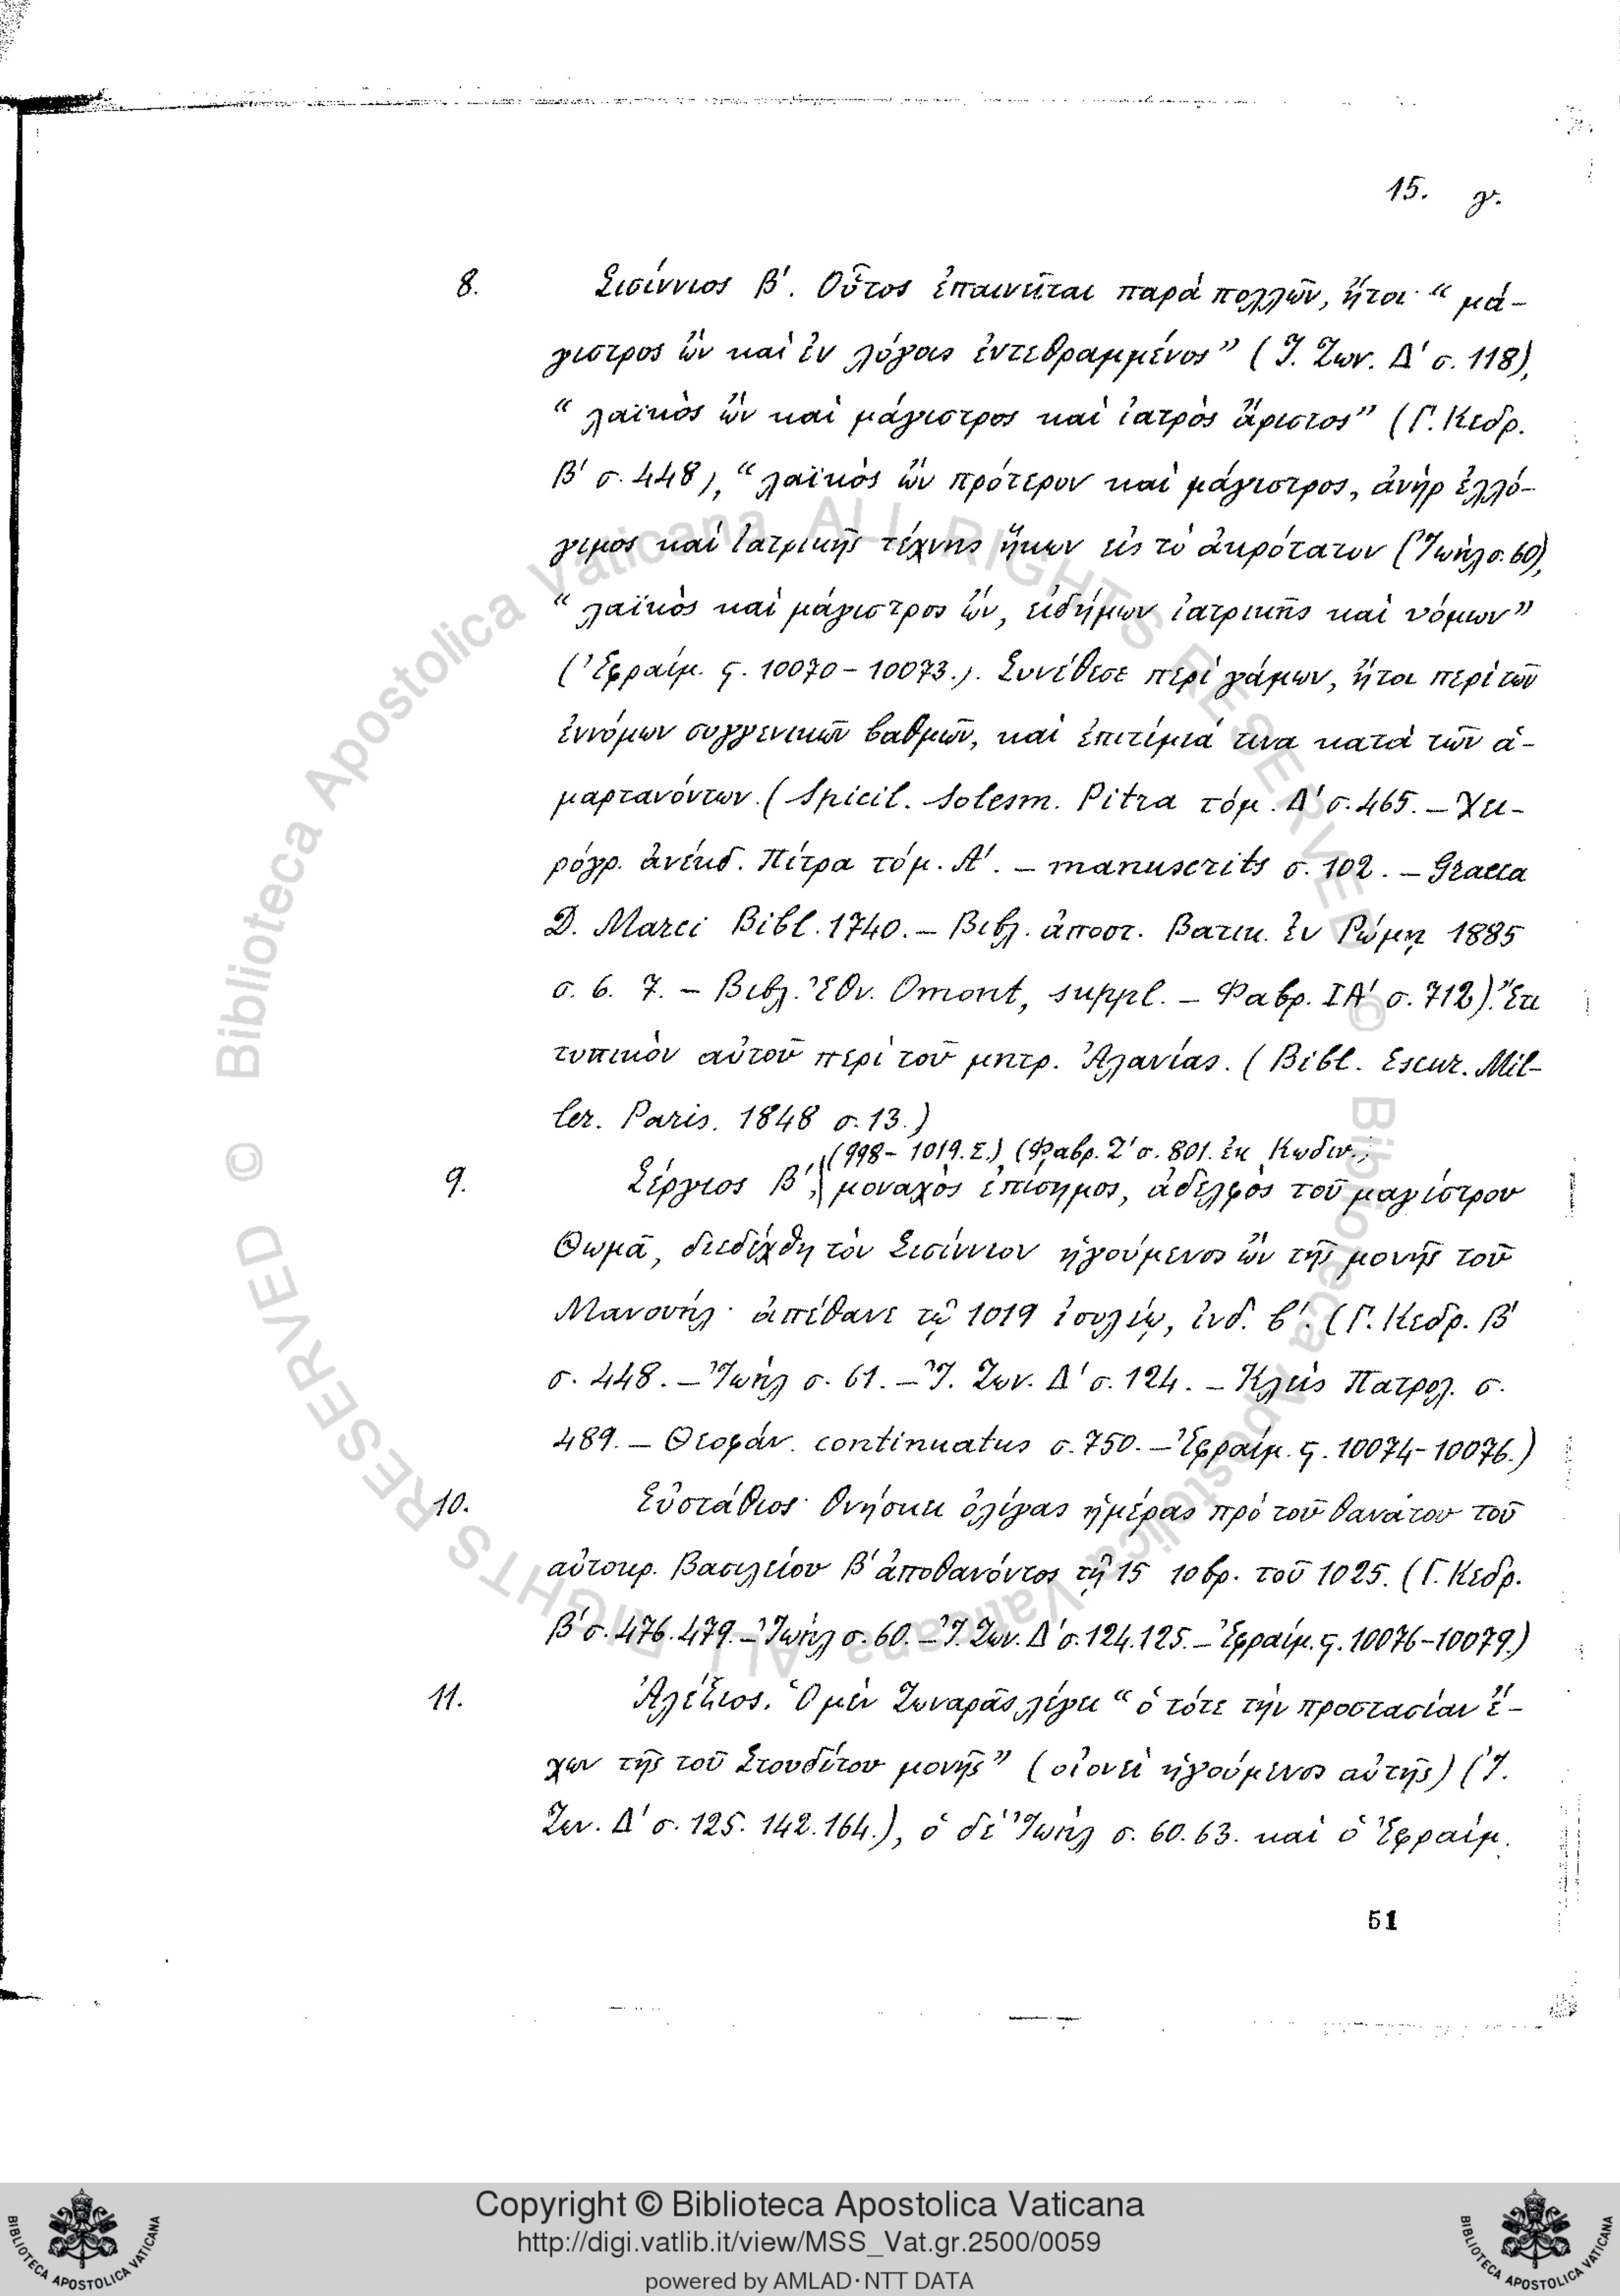 15. γ.
8. Σισίννιος Β′. Οὗτος ἐπαινεῖται παρὰ πολλῶν, ἤτοι “μά-
γιστρος ὢν καὶ ἐν λόγοις ἐντεθραμμένος” (Ἰ. Ζων. Δ′ σ. 118),
“λαϊκὸς ὢν καὶ μάγιστρος καὶ ἰατρὸς ἄριστος” (Γ. Κεδρ.
Β′ σ. 448), “λαϊκὸς ὢν πρότερον καὶ μάγιστρος, ἀνὴρ ἐλλό-
γιμος καὶ ἰατρικῆς τέχνης ἥκων εἰς τὸ ἀκρότατον (Ἰωὴλ σ. 60),
“λαϊκὸς καὶ μάγιστρος ὤν, εἰδήμων ἰατρικῆς καὶ νόμων”
(Ἐφραίμ. ς. 10070-10073.). Συνέθεσε περὶ γάμων, ἤτοι περὶ τῶν
ἐννόμων συγγενικῶν βαθμῶν, καὶ ἐπιτίμιά τινα κατὰ τῶν ἁ-
μαρτανόντων. (Spicil. Solesm. Pitra τόμ. Δ′ σ. 465. – Χει-
ρόγρ. ἀνέκδ. Πίτρα τόμ. Α′. – manuscrits σ. 102. – Graeca
D. Marci Bibl. 1740. – Βιβλ. ἀποστ. Βατικ. ἐν Ρώμῃ 1885
σ. 6. 7. – Βιβλ. Ἐθν. Omont, suppl. – Φαβρ. ΙΑ′ σ. 712). Ἔτι
τυπικὸν αὐτοῦ περὶ τοῦ μητρ. Ἀλανίας. (Bibl. Escur. Mil-
ler. Paris. 1848 σ. 13.)
(998-1019. Σ.) (Φαβρ. Ζ′ σ. 801. ἐκ Κωδιν.;
9. Σέργιος Β′, μοναχὸς ἐπίσημος, ἀδελφὸς τοῦ μαγίστρου
Θωμᾶ, διεδέχθη τὸν Σισίννιον ἡγούμενος ὢν τῆς μονῆς τοῦ
Μανουήλ· ἀπέθανε τῷ 1019 ἰουλίῳ, ἰνδ. β′. (Γ. Κεδρ. Β′
σ. 448. – Ἰωὴλ σ. 61. – Ἰ. Ζων. Δ′ σ. 124. – Κλεὶς Πατρολ. σ.
489. – Θεοφάν. continuatus σ. 750. – Ἐφραίμ. ς. 10074-10076.)
10. Εὐστάθιος· θνήσκει ὀλίγας ἡμέρας πρὸ τοῦ θανάτου τοῦ
αὐτοκρ. Βασιλείου Β′ ἀποθανόντος τῇ 15 10βρ. τοῦ 1025. (Γ. Κεδρ.
Β′ σ. 476. 479. – Ἰωὴλ σ. 60. – Ἰ. Ζων. Δ′ σ. 124. 125. – Ἐφραίμ. ς. 10076-10079.)
11. Ἀλέξιος. Ὁ μὲν Ζωναρᾶς λέγει “ὁ τότε τὴν προστασίαν ἔ-
χων τῆς τοῦ Στουδίτου μονῆς” (οἱονεὶ ἡγούμενος αὐτῆς) (Ἰ.
Ζων. Δ′ σ. 125. 142. 164.), ὁ δὲ Ἰωὴλ σ. 60. 63. καὶ ὁ Ἐφραίμ.
51
© Biblioteca Apostolica Vaticana ALL RIGHTS RESERVED © Biblioteca Apostolica Vaticana ALL RIGHTS RESERVED
Copyright © Biblioteca Apostolica Vaticana
http://digi.vatlib.it/view/MSS_Vat.gr.2500/0059
powered by AMLAD·NTT DATA
BIBLIOTECA APOSTOLICA VATICANA
BIBLIOTECA APOSTOLICA VATICANA